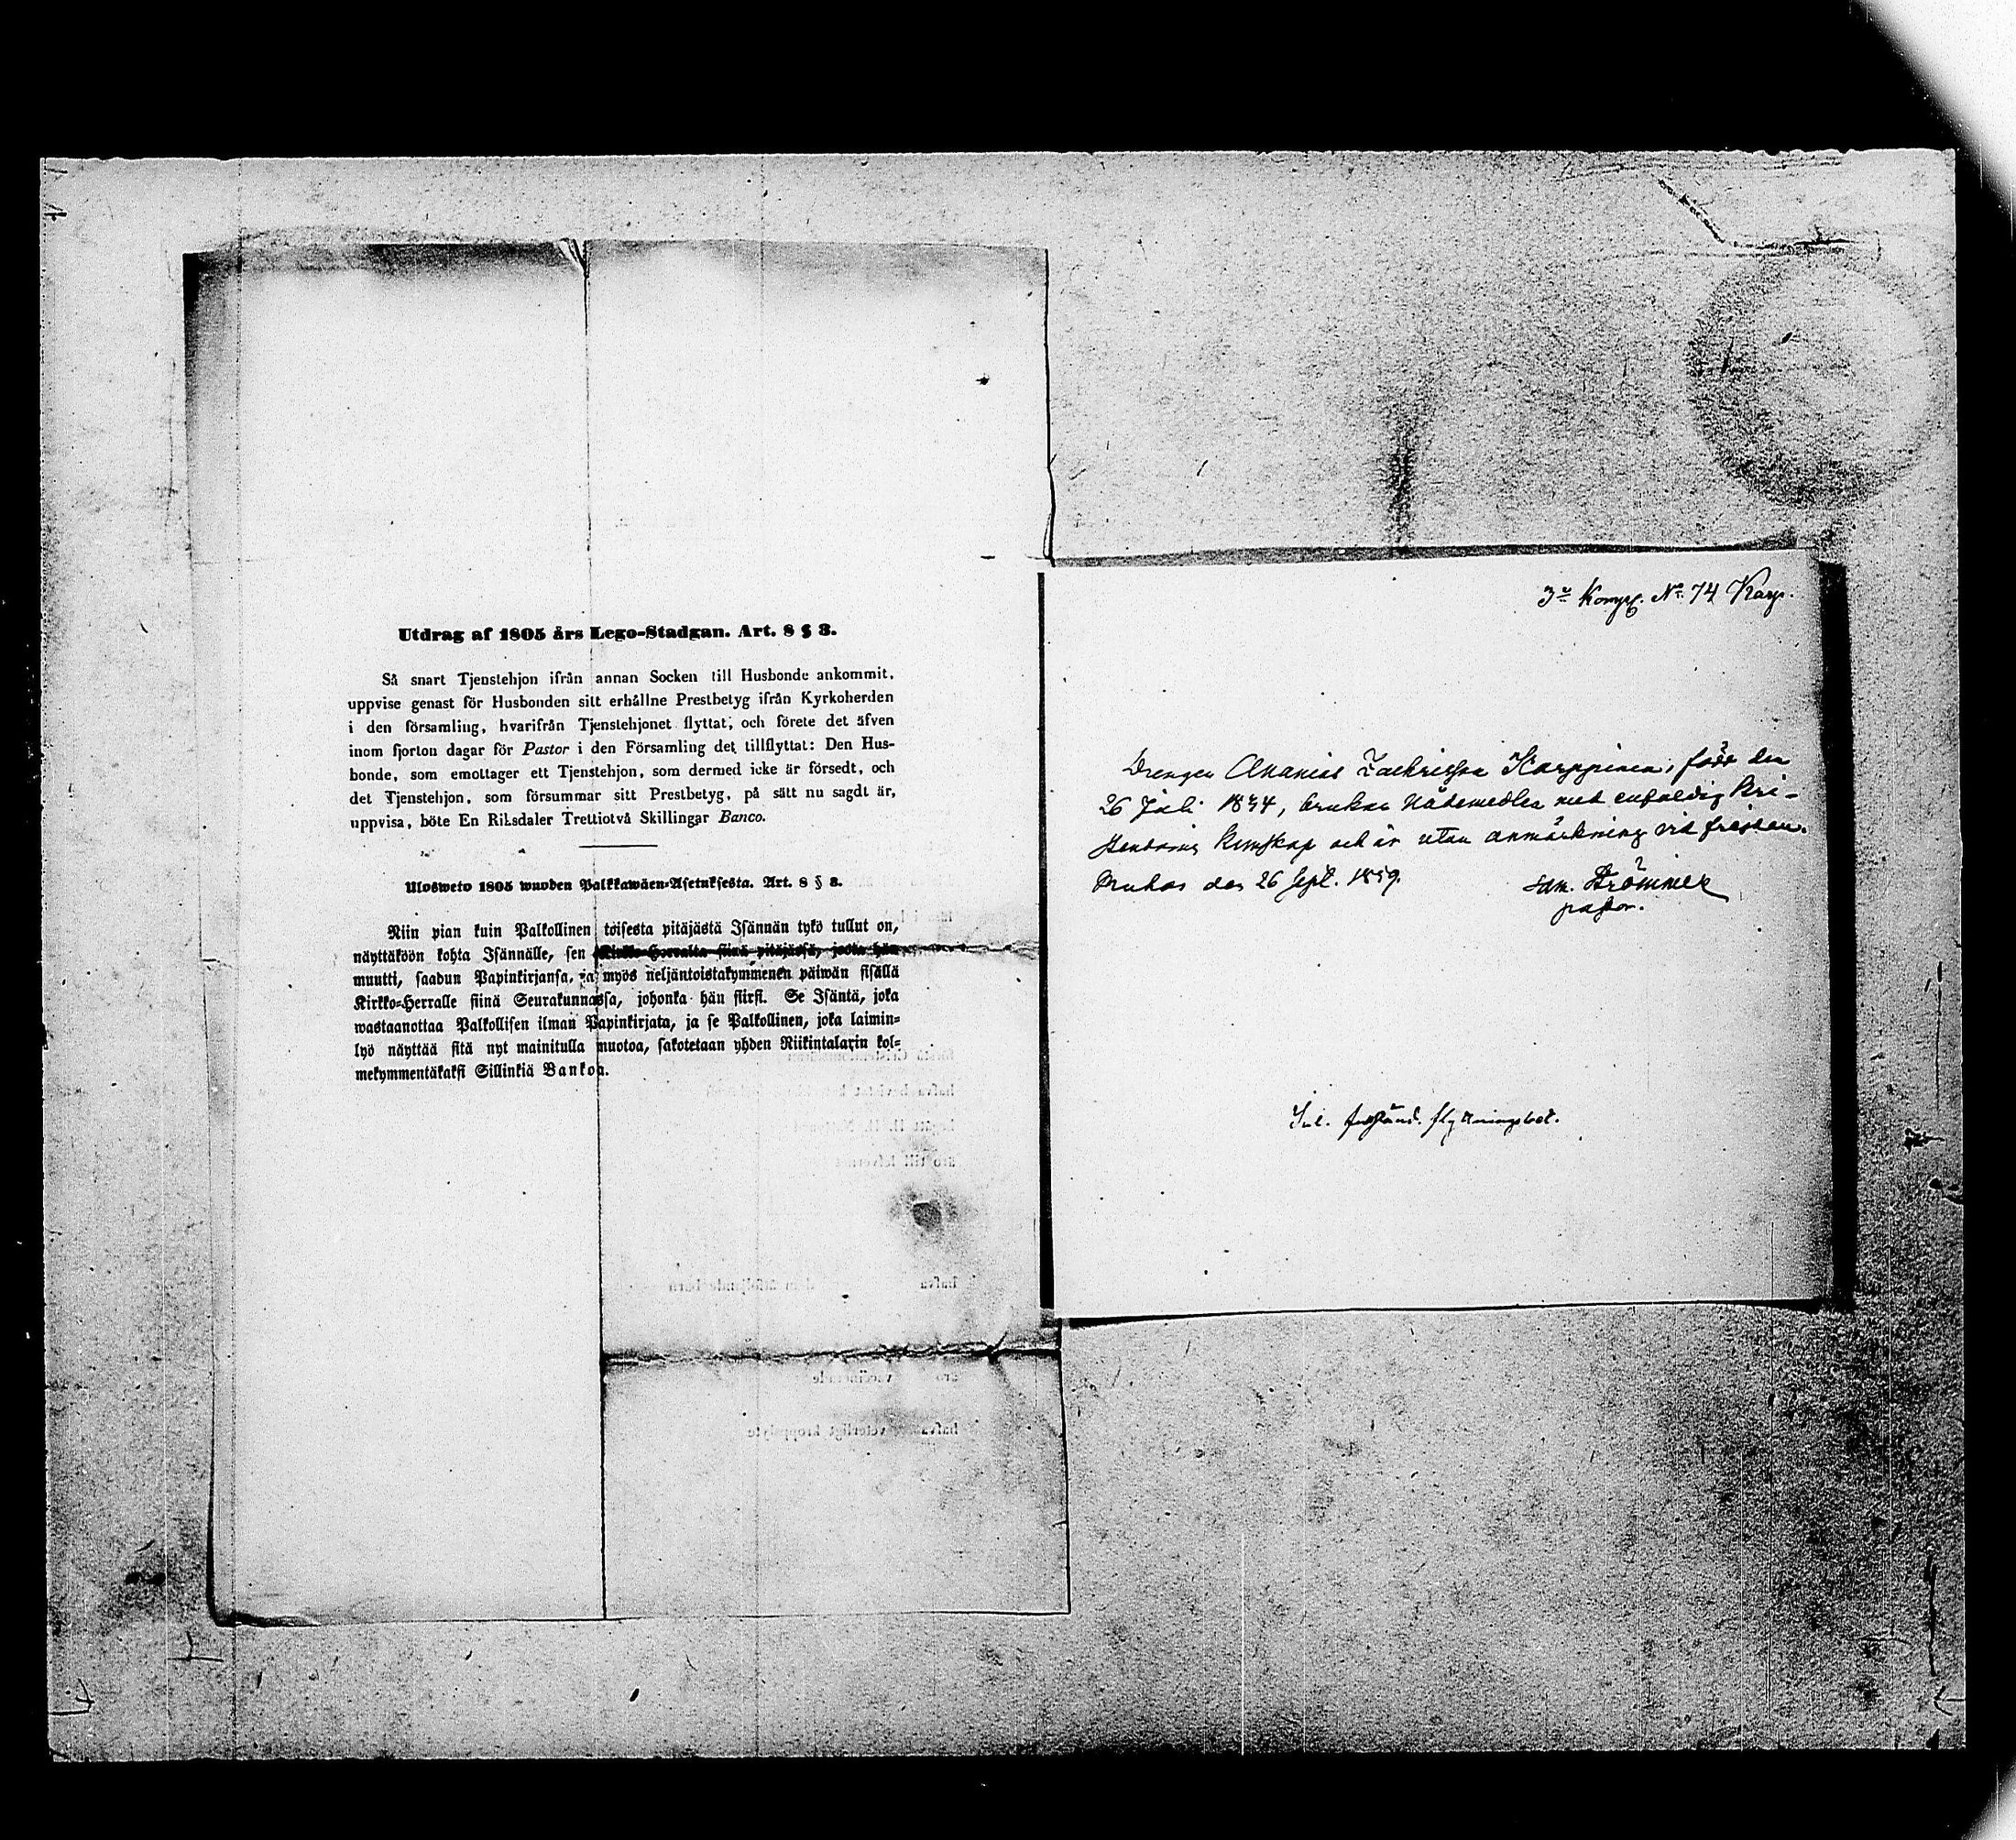 Utdrag af 1805 års Lego-Stadgan. Art. 8 § 3.
Så snart Tjenstehjon ifrån annan Socken till Husbonde ankommit,
uppvise genast för Husbonden sitt erhållne Prestbetyg ifrån Kyrkoherden
i den församling, hvarifrån Tjenstehjonet flyttat, och förete det äfven
inom fjorton dagar för Pastor i den Församling det tillflyttat: Den Hus-
bonde, som emottager ett Tjenstehjon, som dermed icke är försedt, och
det Tjenstehjon, som försummar sitt Prestbetyg, på sätt nu sagdt är,
uppvisa, böte En Riksdaler Trettiotvå Skillingar Banco.
Ulosweto 1805 wuoden Palkkawäen-Asetuksesta. Art. 8 § 3.
Niin pian kuin Palkollinen toisesta pitäjästä Isännän tykö tullut on,
näyttäköön kohta Isännälle, sen Kirkko-Herralta siinä pitäjässä, josta hän
muutti, saadun Papinkirjansa, ja myös neljäntoistakymmenen päiwän sisällä
Kirkko-Herralle siinä Seurakunnassa, johonka hän siirsi. Se Isäntä, joka
wastaanottaa Palkollisen ilman Papinkirjata, ja se Palkollinen, joka laimin-
lyö näyttää sitä nyt mainitulla muotoa, sakotetaan yhden Riikintalarin kol-
mekymmentäkaksi Sillinkiä Bankoa.
3e Komp. No. 74 Karp.
Drengen Ananias Zachrisson Karppinen, född den
26 Juli 1834, brukar Nådemedlen med enfaldig Kri-
stendoms kunskap och är utan anmärkning vid frejden.
Muhos den 26 Sept. 1859. Sam. Strömmer
pastor.
flyttningsbet.